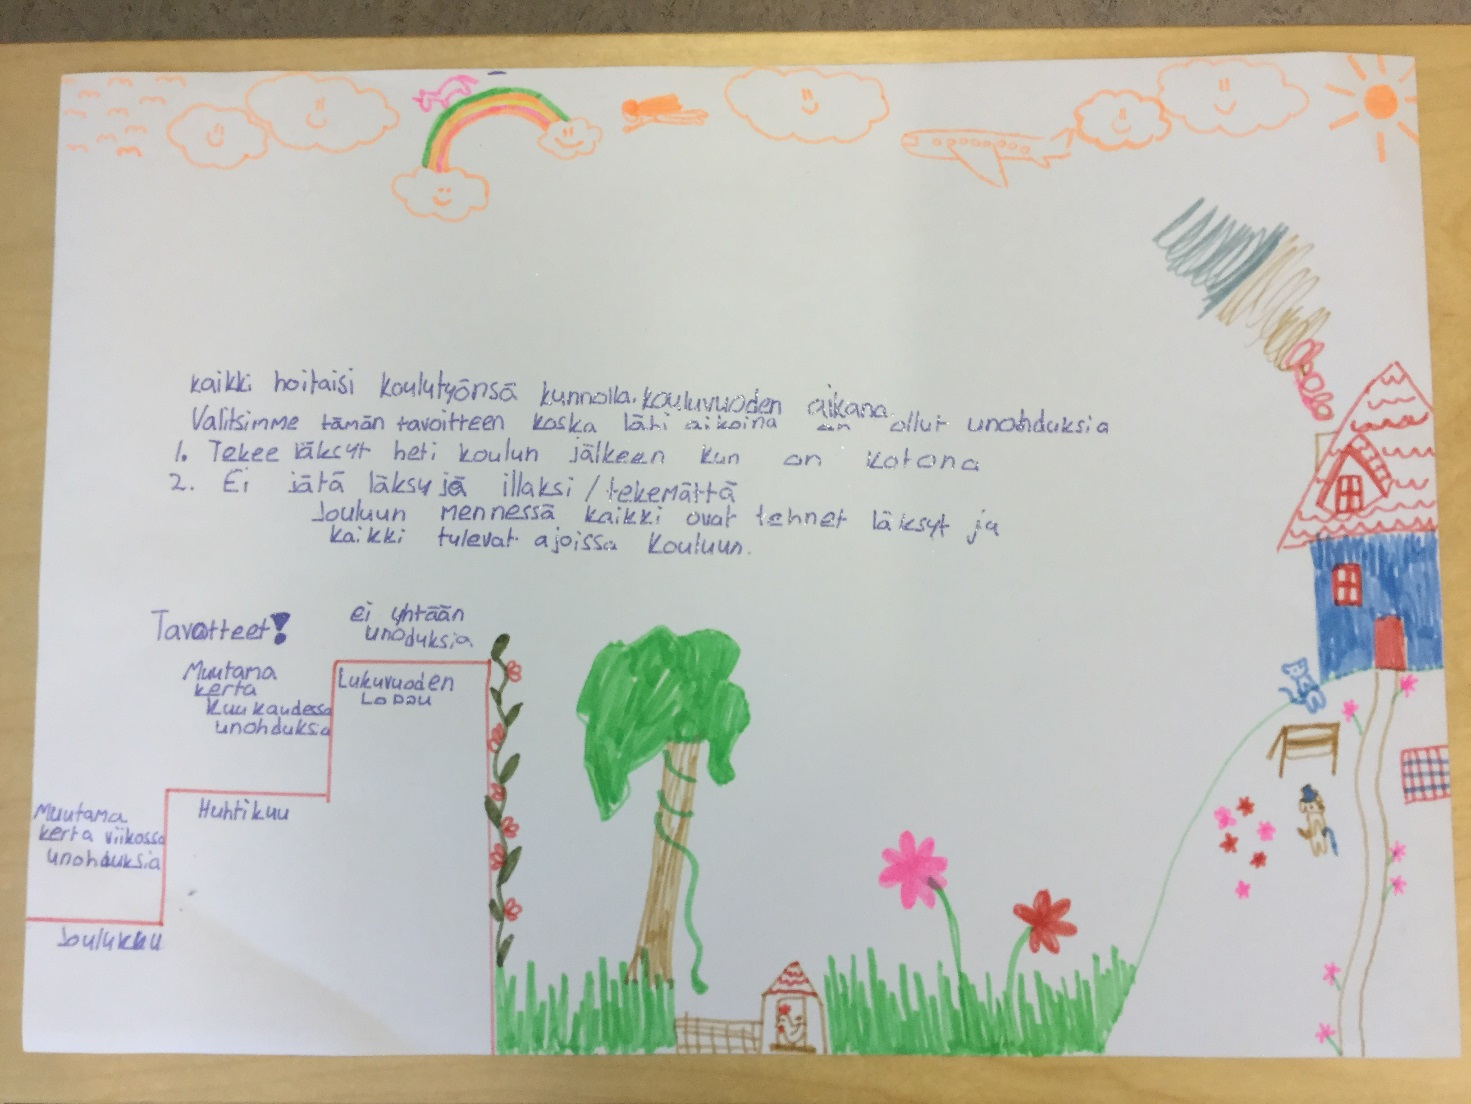 kaikki hoitaisi koulutyönsä kunnolla. kouluvuoden aikana
Valitsimme tämän tavoitteen koska lähi aikoina on ollut unohduksia
1. Tekee läksyt heti koulun jälkeen kun on kotona
2. Ei jätä läksyjä illaksi / tekemättä
Jouluun mennessä kaikki ovat tehnet läksyt ja
kaikki tulevat ajoissa kouluun.
Tavotteet!
ei yhtään
unoduksia
Lukuvuoden
Loppu
Muutama
kerta
kuukaudessa
unohduksia
Huhtikuu
Muutama
kerta viikossa
unohduksia
Joulukuu